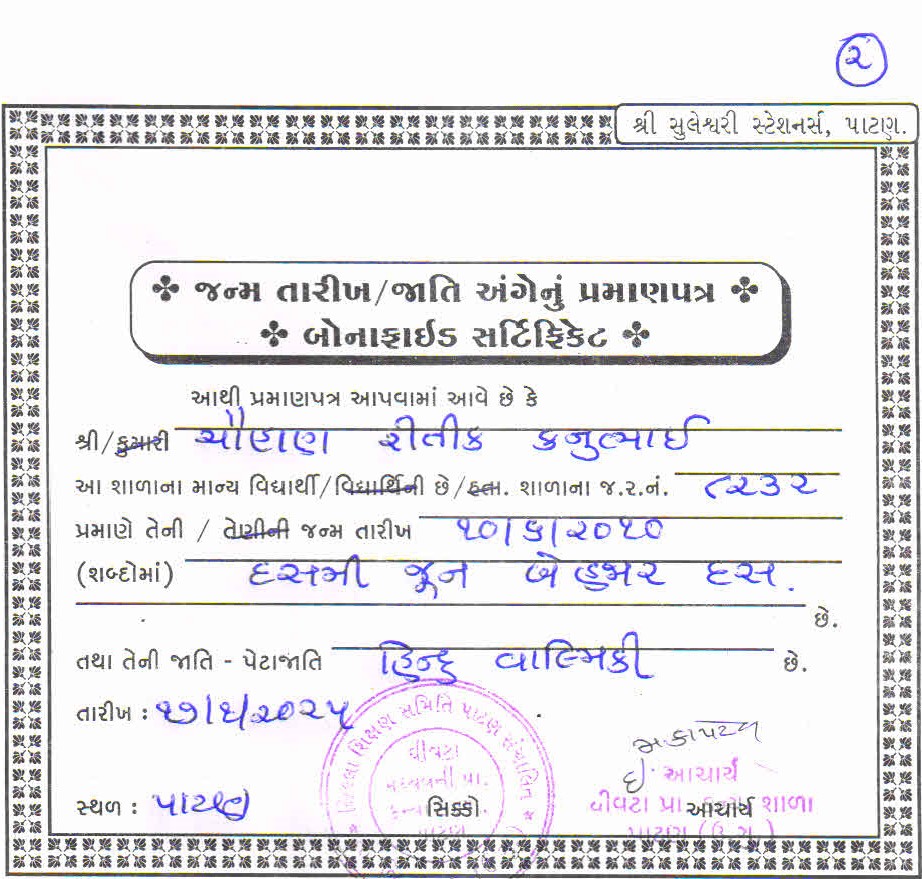 ૨
શ્રી સુલેશ્વરી સ્ટેશનર્સ, પાટણ.
જન્મ તારીખ/જાતિ અંગેનું પ્રમાણપત્ર
બોનાફાઈડ સર્ટિફિકેટ
આથી પ્રમાણપત્ર આપવામાં આવે છે કે
શ્રી/કુમારી ચૌહાણ રીતીક કનુભાઈ
આ શાળાના માન્ય વિદ્યાર્થી/વિદ્યાર્થિની છે/હતા. શાળાના જ.ર.નં. ૮૨૩૨
પ્રમાણે તેની / તેણીની જન્મ તારીખ ૧૦/૬/૨૦૧૦
(શબ્દોમાં) દસમી જૂન બે હજાર દસ.
છે.
તથા તેની જાતિ - પેટાજાતિ હિન્દુ વાલ્મિકી છે.
તારીખ : ૧૭/૧/૨૦૨૫
જિલ્લા શિક્ષણ સમિતિ પાટણ સંચાલિત
ઇ. આચાર્ય
સ્થળ : પાટણ સિક્કો. આચાર્ય
પાટણ
પાટણ (ઉ.ગુ.)